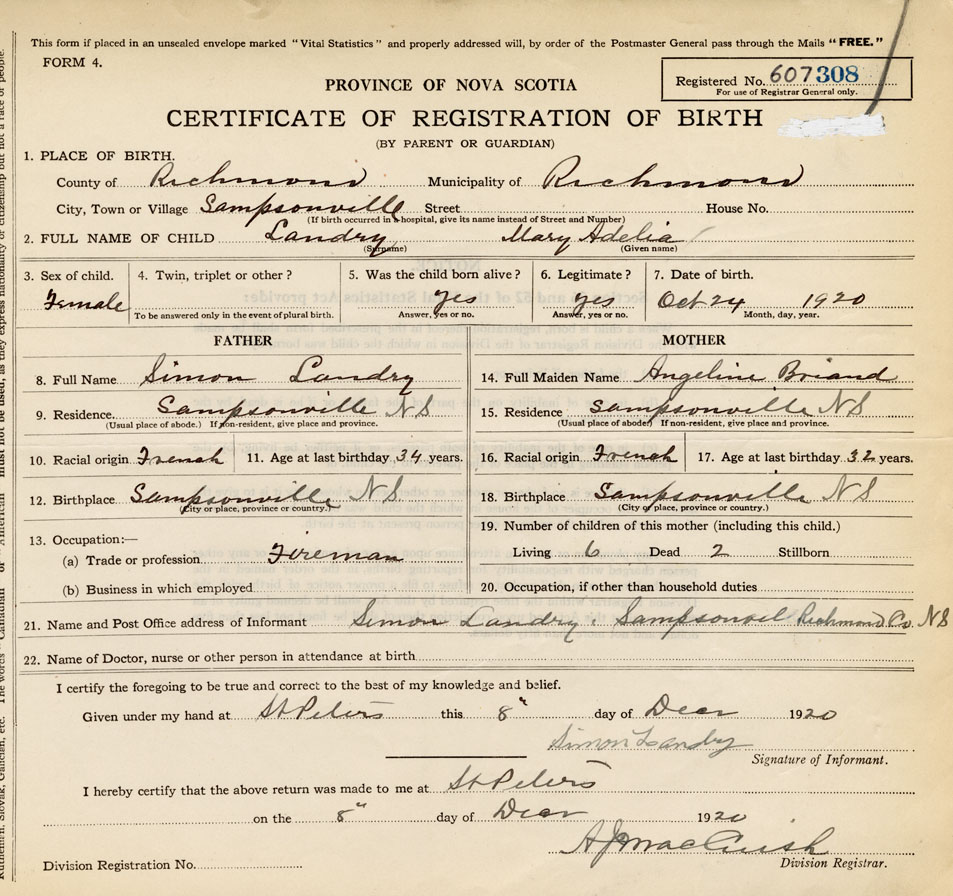 This form if placed in an unsealed envelope marked "Vital Statistics" and properly addressed will, by order of the Postmaster General pass through the Mails "FREE."
FORM 4.
Registered No. 607308
For use of Registrar General only.
PROVINCE OF NOVA SCOTIA
CERTIFICATE OF REGISTRATION OF BIRTH
(BY PARENT OR GUARDIAN)
1. PLACE OF BIRTH.
County of Richmond Municipality of Richmond
City, Town or Village Sampsonville Street House No.
(If birth occurred in a hospital, give its name instead of Street and Number)
2. FULL NAME OF CHILD Landry Mary Adelia
(Surname) (Given name)
3. Sex of child. 4. Twin, triplet or other? 5. Was the child born alive? 6. Legitimate? 7. Date of birth.
Female yes yes Oct 24 1920
To be answered only in the event of plural birth. Answer, yes or no. Answer, yes or no. Month, day, year.
FATHER MOTHER
8. Full Name Simon Landry 14. Full Maiden Name Angeline Briand
9. Residence Sampsonville NS 15. Residence Sampsonville NS
(Usual place of abode.) If non-resident, give place and province. (Usual place of abode) If non-resident, give place and province.
10. Racial origin French 11. Age at last birthday 34 years. 16. Racial origin French 17. Age at last birthday 32 years.
12. Birthplace Sampsonville NS 18. Birthplace Sampsonville NS
(City or place, province or country.) (City or place, province or country.)
19. Number of children of this mother (including this child.)
13. Occupation:—
(a) Trade or profession Fireman Living 6 Dead 2 Stillborn
(b) Business in which employed 20. Occupation, if other than household duties
21. Name and Post Office address of Informant Simon Landry Sampsonvil Richmond Co. NS
22. Name of Doctor, nurse or other person in attendance at birth
I certify the foregoing to be true and correct to the best of my knowledge and belief.
Given under my hand at St Peters this 8" day of Decr 1920
Simon Landry
Signature of Informant.
I hereby certify that the above return was made to me at St Peters
on the 8" day of Decr 1920
A J MacCuish
Division Registration No. Division Registrar.